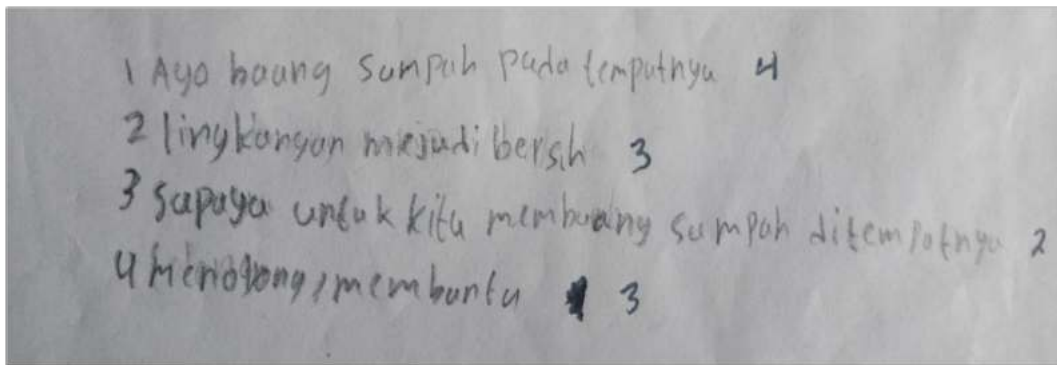 1 Ayo buang sampah pada tempatnya 4
2 lingkangan mejadi bersih 3
3 sapaya untuk kita membuang sampah ditempatnya 2
4 Menolong, membantu 3